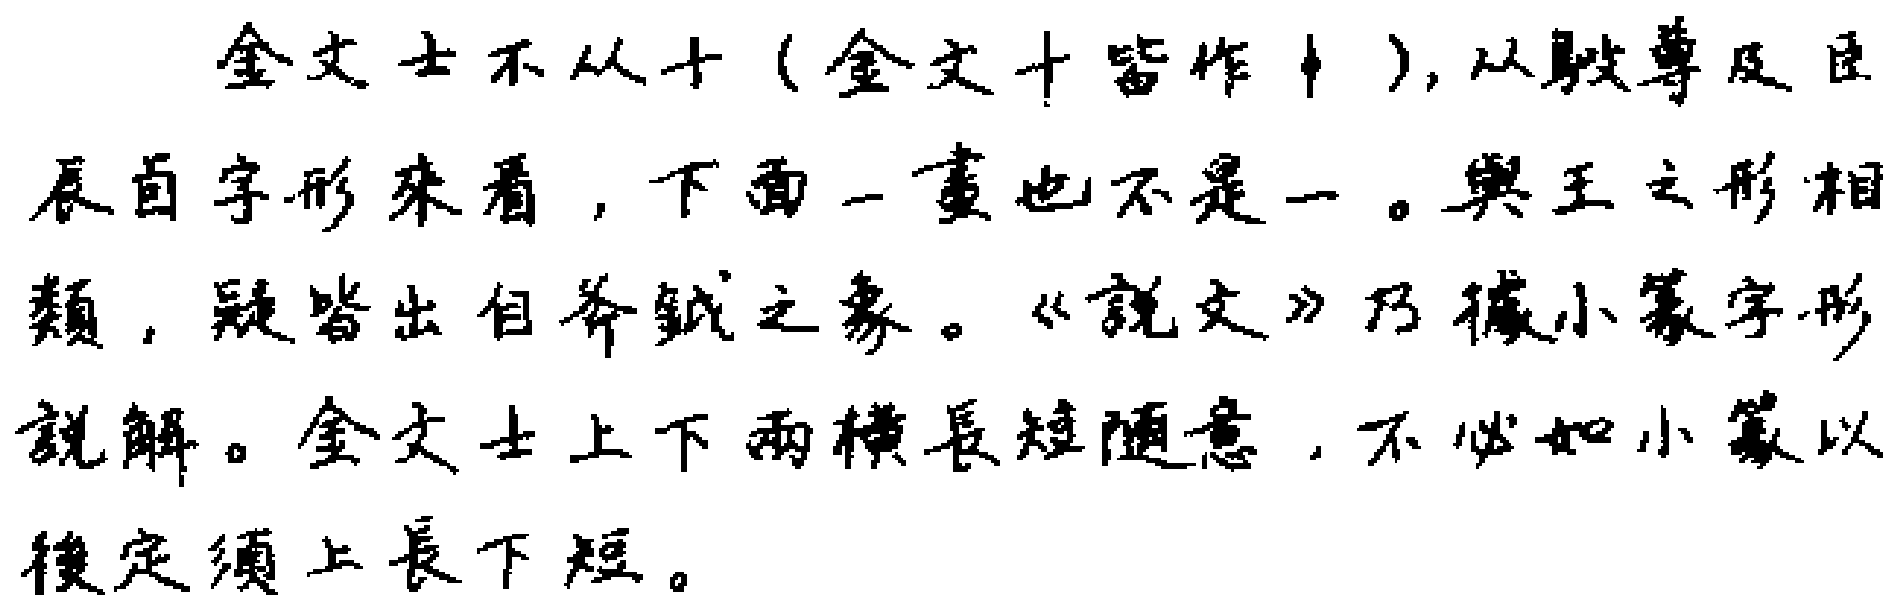 金文士不从十（金文十皆作），从尊及臣
辰卣字形來看，下面一畫也不是一。與王之形相
類，疑皆出自斧鉞之象。《說文》乃據小篆字形
說解。金文士上下兩橫長短隨意，不必如小篆以
後定須上長下短。